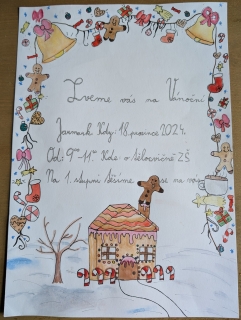 Zveme vás na Vánoční
Jarmark Kdy: 18. prosince 2024.
Od: 9⁰⁰-11⁰⁰ Kde: v tělocvičně ZŠ
Na 1. stupni těšíme se na vás